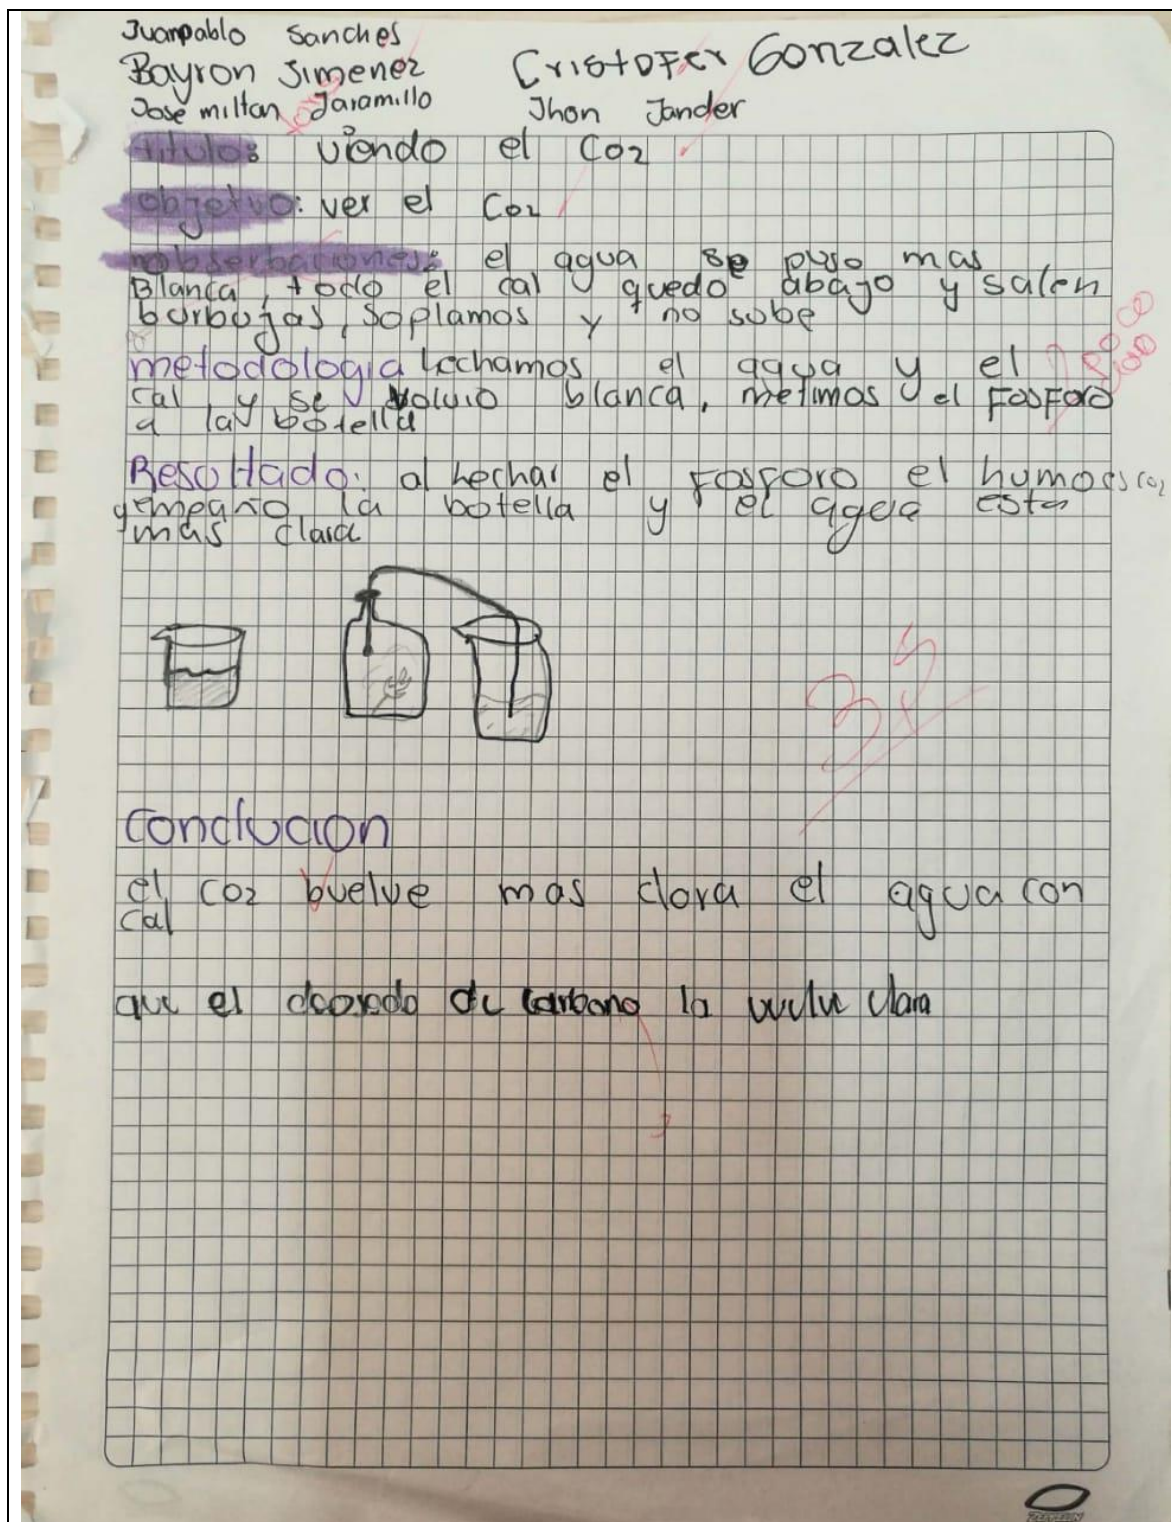 Juanpablo Sanches
Bayron Jimenez Cristofer Gonzalez
Jose miltan Jaramillo Jhon Jander
titulo: viendo el CO2
objetvo: ver el CO2
obserbaciones: el agua se puso mas
Blanca, todo el cal quedo abajo y salen
burbujas, soplamos y no sube
metodologia hechamos el agua y el
cal y se volvio blanca, metimos el FosForo
a la botella
Resoltado: al hechar el FosForo el humo es co2
y empaño la botella y el agua esta
mas clara
poco
claro
3,5
Conclucion
el CO2 buelve mas clara el agua con
cal
que el de carbono la vuelve clara